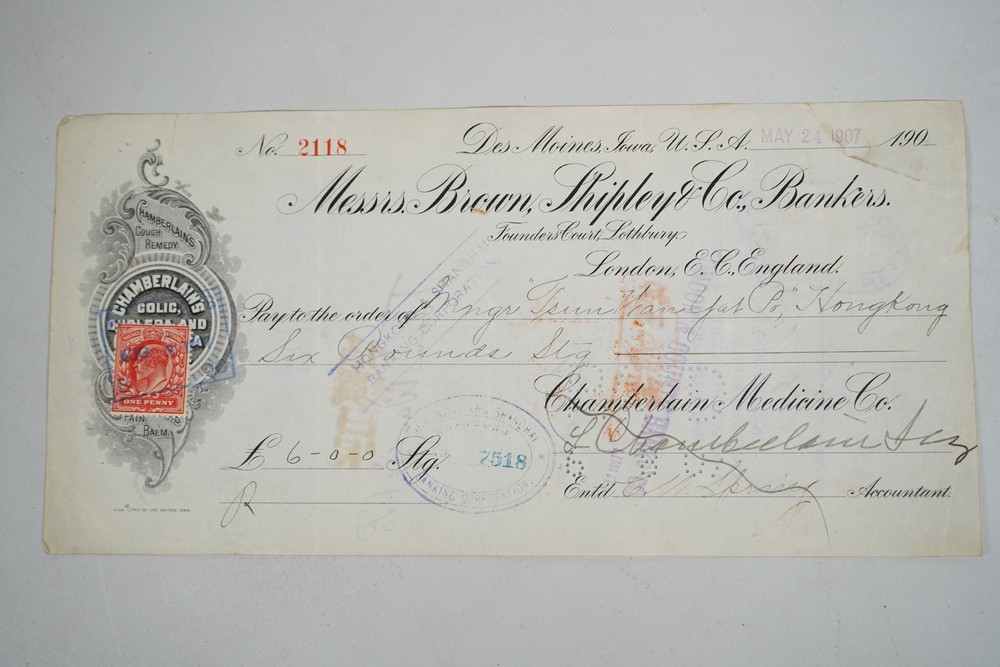 No. 2118
Des Moines, Iowa, U.S.A. MAY 24 1907 190
Messrs. Brown, Shipley & Co., Bankers.
Founders Court, Lothbury
London, E.C., England.
Pay to the order of Mngr "Tsun Wan Yat Po," Hongkong
Six Pounds Stg
Chamberlain Medicine Co.
Chamberlain
£ 6-0-0 Stg.
Ent'd Accountant.
R
CHAMBERLAIN'S
COUGH
REMEDY
CHAMBERLAIN'S
COLIC,
AND
ONE PENNY
PAIN
BALM.
HONGKONG & SHANGHAI
BANKING CORPORATION.
SHANGHAI
7518
BANKING CORPORATION.